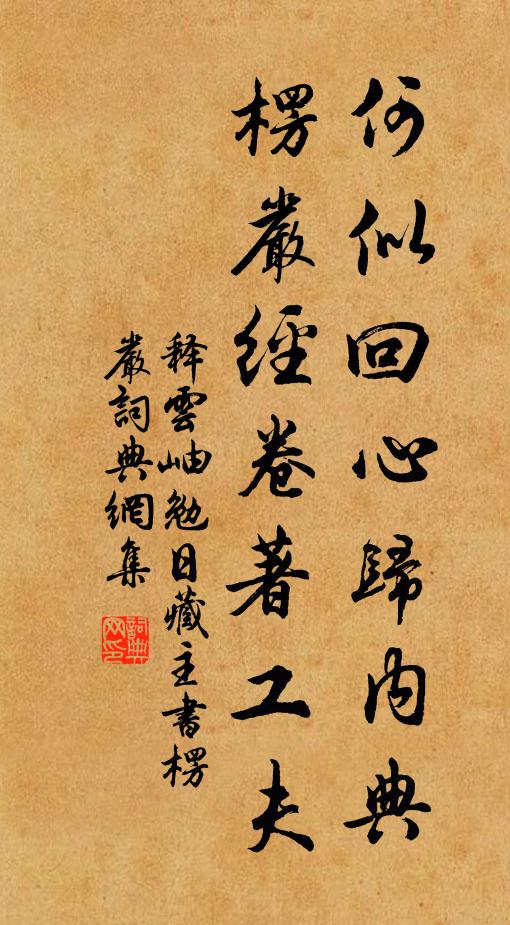 何似回心歸内典
楞嚴經卷著工夫
释雲岫勉日藏主書楞
嚴詞典網集
詞典网印